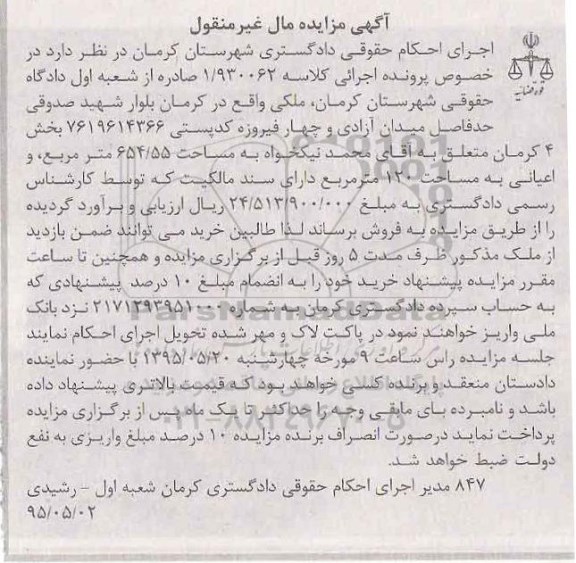 آگهی مزایده مال غیرمنقول
اجرای احکام حقوقی دادگستری شهرستان کرمان در نظر دارد در
خصوص پرونده اجرائی کلاسه ۱/۹۳۰۰۶۲ صادره از شعبه اول دادگاه
حقوقی شهرستان کرمان، ملکی واقع در کرمان بلوار شهید صدوقی
حدفاصل میدان آزادی و چهار فیروزه کدپستی ۷۶۱۹۶۱۴۳۶۶ بخش
۴ کرمان متعلق به آقای محمد نیکخواه به مساحت ۶۵۴/۵۵ متر مربع، و
اعیانی به مساحت ۱۲۰ مترمربع دارای سند مالکیت که توسط کارشناس
رسمی دادگستری به مبلغ ۲۴/۵۱۳/۹۰۰/۰۰۰ ریال ارزیابی و برآورد گردیده
را از طریق مزایده به فروش برساند لذا طالبین خرید می توانند ضمن بازدید
از ملک مذکور ظرف مدت ۵ روز قبل از برگزاری مزایده و همچنین تا ساعت
مقرر مزایده پیشنهاد خرید خود را به انضمام مبلغ ۱۰ درصد پیشنهادی که
به حساب سپرده دادگستری کرمان به شماره ۲۱۷۱۲۹۳۹۵۱۰۰۰ نزد بانک
ملی واریز خواهند نمود در پاکت لاک و مهر شده تحویل اجرای احکام نمایند
جلسه مزایده راس ساعت ۹ مورخه چهارشنبه ۱۳۹۵/۰۵/۲۰ با حضور نماینده
دادستان منعقد و برنده کسی خواهد بود که قیمت بالاتری پیشنهاد داده
باشد و نامبرده بای مابقی وجه را حداکثر تا یک ماه پس از برگزاری مزایده
پرداخت نماید درصورت انصراف برنده مزایده ۱۰ درصد مبلغ واریزی به نفع
دولت ضبط خواهد شد.
۸۴۷ مدیر اجرای احکام حقوقی دادگستری کرمان شعبه اول - رشیدی
۹۵/۰۵/۰۲
قوه قضائیه
ParsNamadData
۰۲۱-۸۸۳۴۹۶۷۰-۵